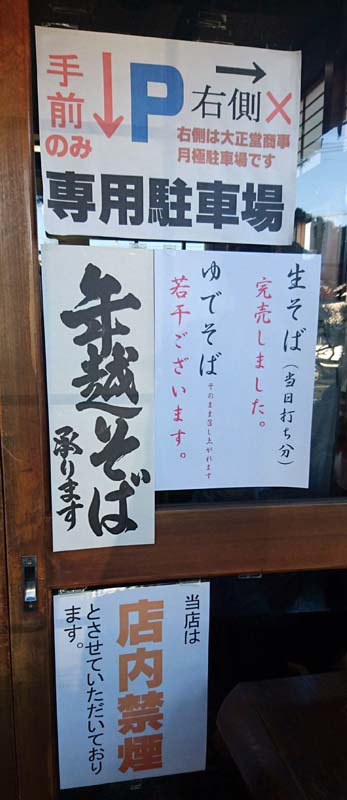 手前
のみ
↓
P
→
右側×
右側は大正堂商事
月極駐車場です
専用駐車場
年越そば
承ります
生そば(当日打ち分)
完売しました。
ゆでそば そのまま召し上がれます
若干ございます。
当店は
店内禁煙
とさせていただいており
ます。